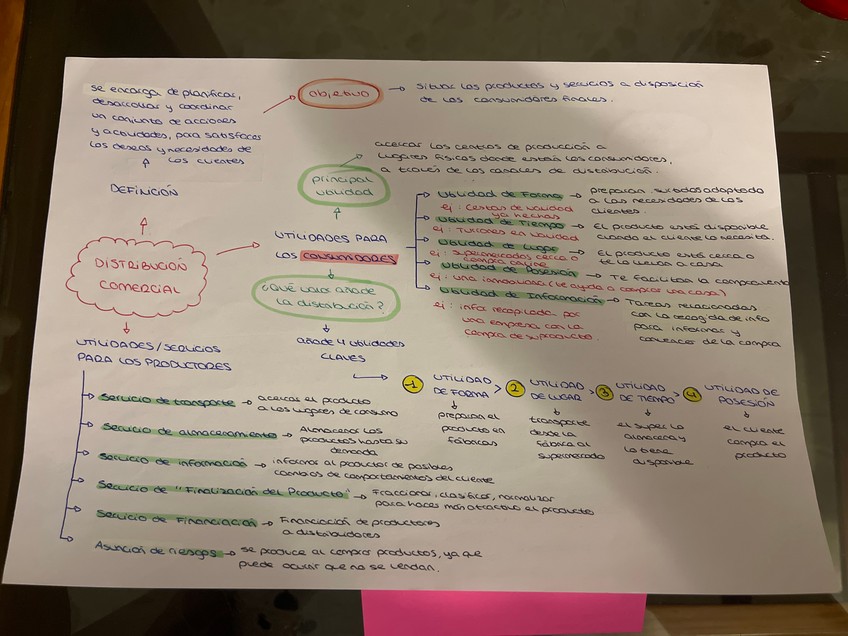 se encarga de planificar,
desarrollar y coordinar
un conjunto de acciones
y actividades, para satisfacer
los deseos y necesidades de
los clientes
DEFINICIÓN
objetivo
situar los productos y servicios a disposición
de los consumidores finales.
DISTRIBUCIÓN
COMERCIAL
principal
utilidad
acercar los centros de producción a
lugares físicos donde están los consumidores,
a través de los canales de distribución.
UTILIDADES PARA
LOS CONSUMIDORES
Utilidad de Forma → preparan surtidos adaptado
a las necesidades de los
clientes.
ej: Cestas de navidad
ya hechas
Utilidad de Tiempo → El producto está disponible
cuando el cliente lo necesita.
ej: Turrones en navidad
Utilidad de Lugar → El producto está cerca o
te lo llevan a casa
ej: supermercados cerca o
compra online
Utilidad de Posesión → Te facilitan la compra
ej: una inmobiliaria (te ayuda a comprar una casa)
Utilidad de Información → Tareas relacionadas
con la recogida de info
para informar y
convencer de la compra
ej: infor recopilada por
una empresa con la
compra de su producto.
¿Qué valor añade
la distribución?
añade 4 utilidades
claves
1 UTILIDAD
DE FORMA >
preparan el
producto en
fábricas
2 UTILIDAD
DE LUGAR >
transporte
desde la
fábrica al
supermercado
3 UTILIDAD
DE TIEMPO >
el super lo
almacena y
lo tiene
disponible
4 UTILIDAD DE
POSESIÓN
el cliente
compra el
producto
UTILIDADES/SERVICIOS
PARA LOS PRODUCTORES
Servicio de transporte → acercar el producto
a los lugares de consumo
Servicio de almacenamiento → Almacenar los
productos hasta su
demanda
Servicio de información → informar al productor de posibles
cambios de comportamientos del cliente
Servicio de "Finalización del Producto" → Fraccionar, clasificar, normalizar
para hacer más atractivo el producto
Servicio de Financiación → Financiación de productores
a distribuidores
Asunción de riesgos → se produce al comprar productos, ya que
puede ocurrir que no se vendan.